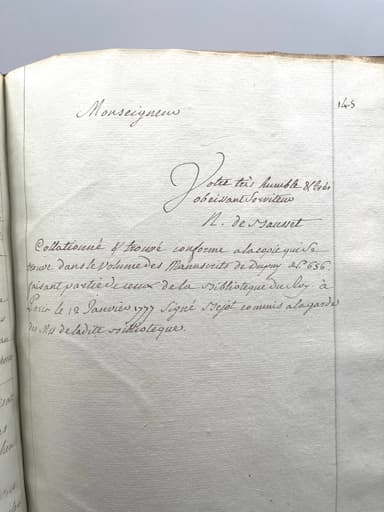 145
Monseigneur
Votre très humble & très
obeissant Serviteur
N. de
Collationné & trouvé conforme a la copie qui Se
trouve dans le Volume des Manuscrits de Dupuy N.º 656
faisant partie de ceux de la Bibliotéque du Roy à
Paris le 12 Janvier 1777 Signé Bejot commis a la garde
des Mss de la dite Bibliotéque.